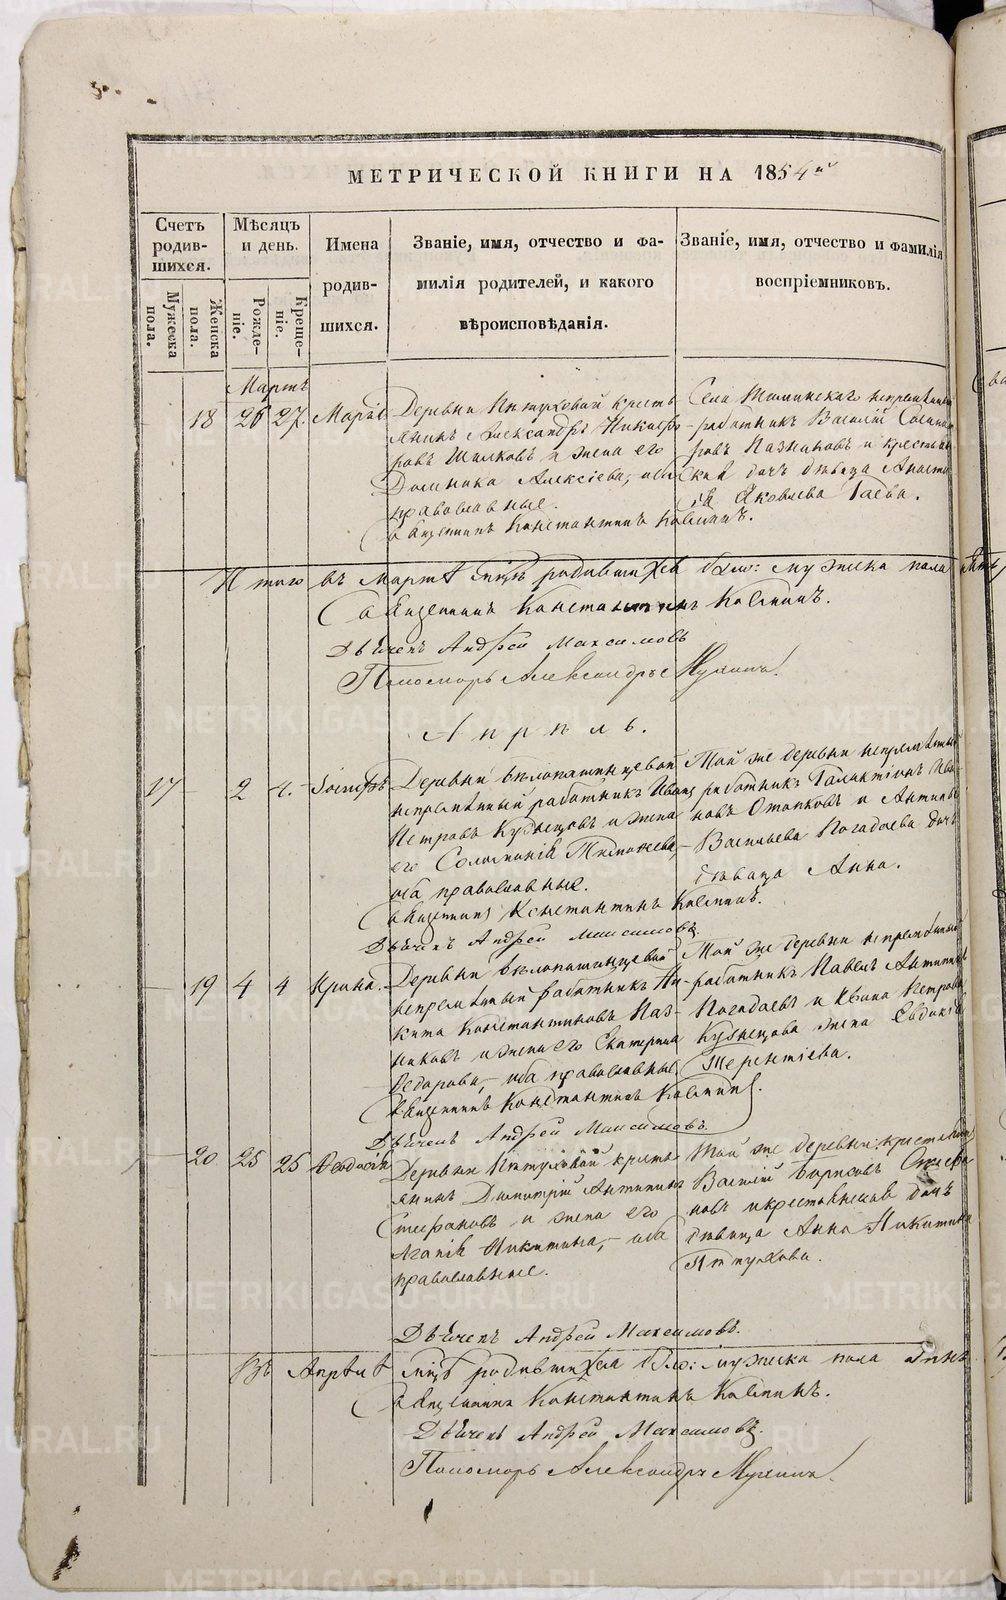 МЕТРИЧЕСКОЙ КНИГИ НА 1854й
Счетъ родив-шихся.
Мужеска пола.
Женска пола.
Мѣсяцъ и день.
Рожде-ніе.
Креще-ніе.
Имена родив-шихся.
Званіе, имя, отчество и фа-
милія родителей, и какого
вѣроисповѣданія.
Званіе, имя, отчество и фамилія
воспріемниковъ.
Мартъ
18 26 27. Марія
Деревни Пѣтуховой кресть
янинъ Александръ Никиф
ровъ Шилковъ и жена его
Домника Алексіева, оба
православные.
Священникъ Константинъ Калининъ.
Села
работникъ Василій
ровъ Пазниковъ и крестьян
кая дочь дѣвица Анаста
ія Яковлева Гаева.
Итого въ Мартѣ мцѣ родившихся было: мужеска пола пять
Священникъ Константинъ Калининъ.
Дьячекъ Андрей Максимовъ
Пономарь Александръ Мухинъ.
Апрѣль.
17 - 2 4. Іосифъ
Деревни Бѣлопашинцевой
непремѣнный работникъ Иванъ
Петровъ Кузнецовъ и жена
его Соломонія Тимофеева, –
оба православные.
Священникъ Константинъ Калининъ.
Дьячекъ Андрей Максимовъ.
Той же деревни непремѣнный
работникъ Галактіонъ Ива
новъ и Антипы
Васильева Погадаева дочь
дѣвица Анна.
- 19 4 4 Ирина.
Деревни Бѣлопашинцевой
непремѣнный работникъ Ни-
кита Константиновъ Паз-
никовъ и жена его Екатерина
Федорова, – оба православные
Священникъ Константинъ Калининъ.
Дьячекъ Андрей Максимовъ.
Той же деревни непремѣнный
работникъ Павелъ Антипинъ
Погадаевъ и Ивана Петрова
Кузнецова жена Евдокія
Терентіева.
- 20 25 25 Ѳеодосія
Деревни Пѣтуховой кресть
янинъ Димитрій Антипинъ
Стефановъ и жена его
Агапія Никитина, – оба
православные.
Той же деревни крестьянинъ
Василій Борисовъ
новъ и крестьянская дочь
дѣвица Анна Никитина
Пѣтухова.
Дьячекъ Андрей Максимовъ.
Въ Апрѣлѣ мцѣ родившихся было: мужеска пола одинъ
Священникъ Константинъ Калининъ.
Дьячекъ Андрей Максимовъ.
Пономарь Александръ Мухинъ.
METRIKI.GASO-URAL.RU